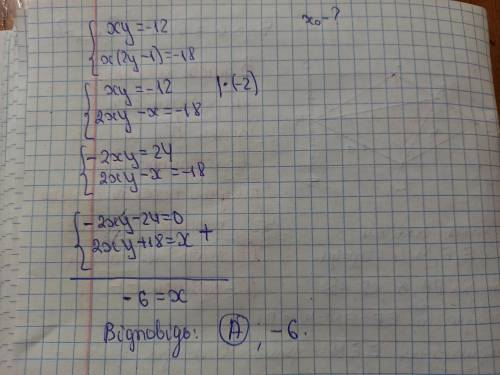 xy=-12
x₀-?
x(2y-1)=-18
xy=-12 |·(-2)
2xy-x=-18
-2xy=24
2xy-x=-18
-2xy-24=0
2xy+18=x +
-6=x
Відповідь: А; -6.